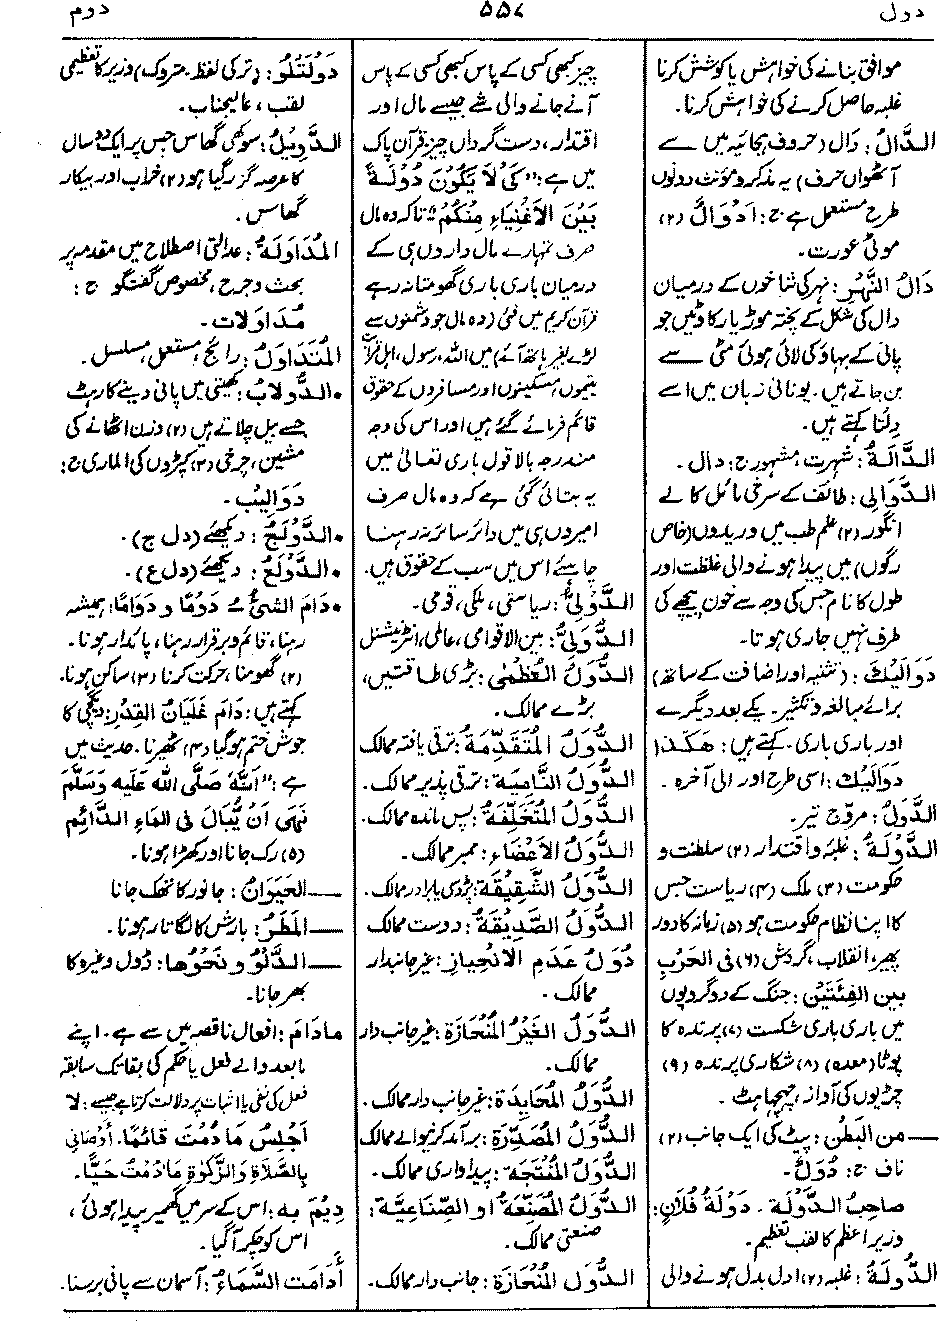 دول
۵۵۷
دوم
موافق بنانے کی خواہش یا کوشش کرنا
غلبہ حاصل کرنے کی خواہش کرنا۔
الدَّالُ: دال (حروف ہجائیہ میں سے
آٹھواں حرف) یہ مذکر و مؤنث دونوں
طرح مستعمل ہے ج: اَدْوَالٌ (۲)
موٹی عورت۔
دَالُ النَّهْرِ: نہر کی شاخوں کے درمیان
دال کی شکل کے پختہ موڑ یا رکاوٹیں جو
پانی کے بہاؤ کی لائی ہوئی مٹی سے
بن جاتے ہیں۔ یونانی زبان میں اسے
دِلْتا کہتے ہیں۔
الدَّالَةُ: شہرت، مشہور ج: دال۔
الدَّوَالِي: طائف کے سرخی مائل کالے
انگور (۲) علم طب میں وریدوں (خاص
رگوں) میں پیدا ہونے والی غلظت اور
طول کا نام جس کی وجہ سے خون پیچھے کی
طرف نہیں جاری ہوتا۔
دَوَالَيْكَ: (تثنیہ اور اضافت کے ساتھ)
برائے مبالغہ و تکثیر۔ یکے بعد دیگرے
اور باری باری۔ کہتے ہیں: هٰكَذَا
دَوَالَيْكَ: اسی طرح اور الی آخرہ۔
الدَّوَلُ: مروّج تیر۔
الدَّوْلَةُ: غلبہ و اقتدار (۲) سلطنت و
حکومت (۳) ملک (۴) ریاست جس
کا اپنا نظام حکومت ہو (۵) زمانہ کا دور
پھیر، انقلاب، گردش (۶) فی الحَرْبِ
بين الفِئَتَيْنِ: جنگ کے دو گروپوں
میں باری باری شکست (۷) پرندہ کا
پوٹا (معدہ) (۸) شکاری پرندہ (۹)
چڑیوں کی آواز، چہچہاہٹ۔
— من البَطْنِ: پیٹ کی ایک جانب (۲)
ناف ج: دُوَلٌ۔
صاحِبُ الدَّوْلَة۔ دَوْلَةُ فُلَانٍ:
وزیر اعظم کا لقب تعظیم۔
الدُّولَةُ: غلبہ (۲) ادل بدل ہونے والی
چیز کبھی کسی کے پاس کبھی کسی کے پاس
آنے جانے والی شے جیسے مال اور
اقتدار، دست گرداں چیز۔ قرآن پاک
میں ہے: "كَيْ لَا يَكُوْنَ دُوْلَةً
بَيْنَ الْأَغْنِيَاءِ مِنْكُمْ" تاکہ وہ مال
صرف تمہارے مال داروں ہی کے
درمیان باری باری گھومتا نہ رہے
قرآن کریم میں فئی (وہ مال جو دشمنوں سے
لڑے بغیر ہاتھ آئے) میں اللہ، رسول، اہل قرابت
یتیموں، مسکینوں اور مسافروں کے حقوق
قائم فرمائے گئے ہیں اور اس کی وجہ
مندرجہ بالا قول باری تعالیٰ میں
یہ بتائی گئی ہے کہ وہ مال صرف
امیروں ہی میں دائر سائر نہ رہنا
چاہیئے اس میں سب کے حقوق ہیں۔
الدَّوْلِيُّ: ریاستی، ملکی، قومی۔
الدُّوَلِيُّ: بین الاقوامی، عالمی، انٹرنیشنل
الدُّوَلُ العُظْمٰى: بڑی طاقتیں،
بڑے ممالک۔
الدُّوَلُ المُتَقَدِّمَةُ: ترقی یافتہ ممالک
الدُّوَلُ النَّامِيَة: ترقی پذیر ممالک۔
الدُّوَلُ المُتَخَلِّفَةُ: پس ماندہ ممالک۔
الدُّوَلُ الأَعْضَاء: ممبر ممالک۔
الدُّوَلُ الشَّقِيْقَة: پڑوسی یا برادر ممالک۔
الدُّوَلُ الصَّدِيْقَة: دوست ممالک
دُوَلُ عَدَمِ الانْحِيَازِ: غیر جانبدار
ممالک۔
الدُّوَلُ الغَيْرُ المُنْحَازَة: غیر جانب دار
ممالک۔
الدُّوَلُ المُحَايِدَة: غیر جانب دار ممالک۔
الدُّوَلُ المُصَدِّرَة: برآمد کرنیوالے ممالک
الدُّوَلُ المُنْتِجَة: پیداواری ممالک۔
الدُّوَلُ المُصَنِّعَةُ او الصِّنَاعِيَّة:
صنعتی ممالک۔
الدُّوَل المُنْحَازَة: جانب دار ممالک۔
دَوْلَتْلُو: (ترکی لفظ۔ متروک) وزیر کا تعظیمی
لقب، عالیجناب۔
الدَّوِيْلُ: سوکھی گھاس جس پر ایک دو سال
کا عرصہ گزر گیا ہو (۲) خراب اور بیکار
گھاس۔
المُدَاوَلَةُ: عدالتی اصطلاح میں مقدمہ پر
بحث و جرح، مخصوص گفتگو ج:
مُدَاوَلات۔
المُتَدَاوَلُ: رائج، مستعمل، مسلسل۔
• الدُّولَابُ: کھیتی میں پانی دینے کا رہٹ
جسے بیل چلاتے ہیں (۲) وزن اٹھانے کی
مشین، چرخی (۳) کپڑوں کی الماری ج:
دَوَالِيْب۔
• الدَّوْلَجُ: دیکھئے (دل ج)۔
• الدَّوْلَعُ: دیکھئے (دل ع)۔
• دَامَ الشَّيْءُ ـُ دَوْمًا و دَوَامًا: ہمیشہ
رہنا، قائم و برقرار رہنا، پائدار ہونا۔
(۲) گھومنا، حرکت کرنا (۳) ساکن ہونا۔
کہتے ہیں: دَامَ غَلَيَانُ القِدْرِ: دیگچی کا
جوش ختم ہوگیا (۴) ٹھیرنا۔ حدیث میں
ہے: "أَنَّهُ صَلَّى الله عَلَيهِ وَسَلَّمَ
نَهَى أَنْ يُّبَالَ فِي المَاءِ الدَّائِمِ
(۵) رک جانا اور کھڑا ہونا۔
— الحَيَوَانُ: جانور کا تھک جانا
— المَطَرُ: بارش کا لگاتار ہونا۔
— الدَّلْوُ و نَحْوُها: ڈول وغیرہ کا
بھر جانا۔
مادَامَ: افعال ناقصہ میں سے ہے۔ اپنے
مابعد والے فعل یا حکم کی بقا تک سابقہ
فعل کی نفی یا اثبات پر دلالت کرتا ہے جیسے: لَا
أَجْلِسُ مَا دُمْتَ قَائِمًا۔ أَوْصَانِي
بِالصَّلَاةِ وَالزَّكٰوةِ مَا دُمْتُ حَيًّا۔
دِيْمَ بِهِ: اس کے سر میں گھمیر پیدا ہوئی،
اس کو چکر آگیا۔
أَدَامَت السَّمَاءُ: آسمان سے پانی برسنا۔